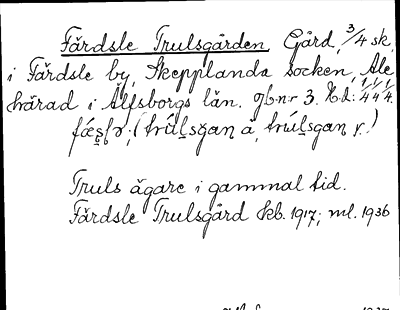 Färdsle Trulsgården Gård, 3/4 sk,
i Färdsle by, Skepplanda socken, Ale
härad i Älfsborgs län. gb.nr 3. Kd: 1/4 1/4 1/4.
(trúlsgan å, trúlsgan r.)
Truls ägare i gammal tid.
Färdsle Trulsgård kb. 1917; ml. 1936